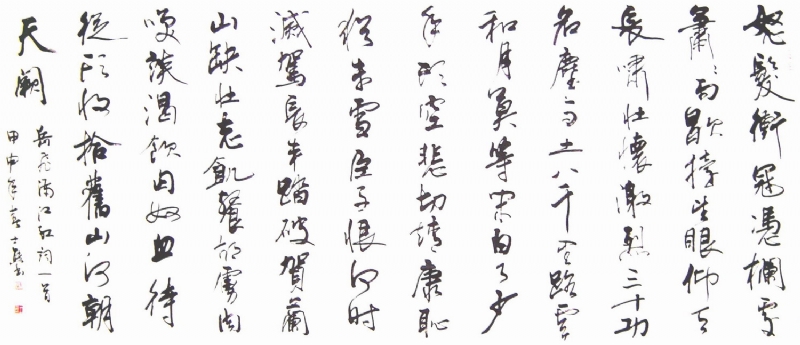 怒髮衝冠憑欄處
蕭々雨歇擡望眼仰天
長嘯壯懷激烈三十功
名塵与土八千里路雲
和月莫等閑白了少
年頭空悲切靖康恥
猶未雪臣子恨何时
滅駕長車踏破賀蘭
山缺壯志飢餐胡虜肉
笑談渴飲匈奴血待
從頭收拾舊山河朝
天闕
岳飛滿江紅詞一首
甲申年春